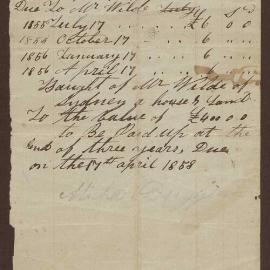 Due To Mr Wilde July £ s d
1855 July 17 £6 0 0
1855 October 17 " 6 " "
1856 January 17 " 6 " "
1856 April 17 " 6
Bought of Mr Wilde of
Sydney a house & Land
To the value of £400 0 0
to be Paid up at the
End of three years, Due
on the 17th april 1858